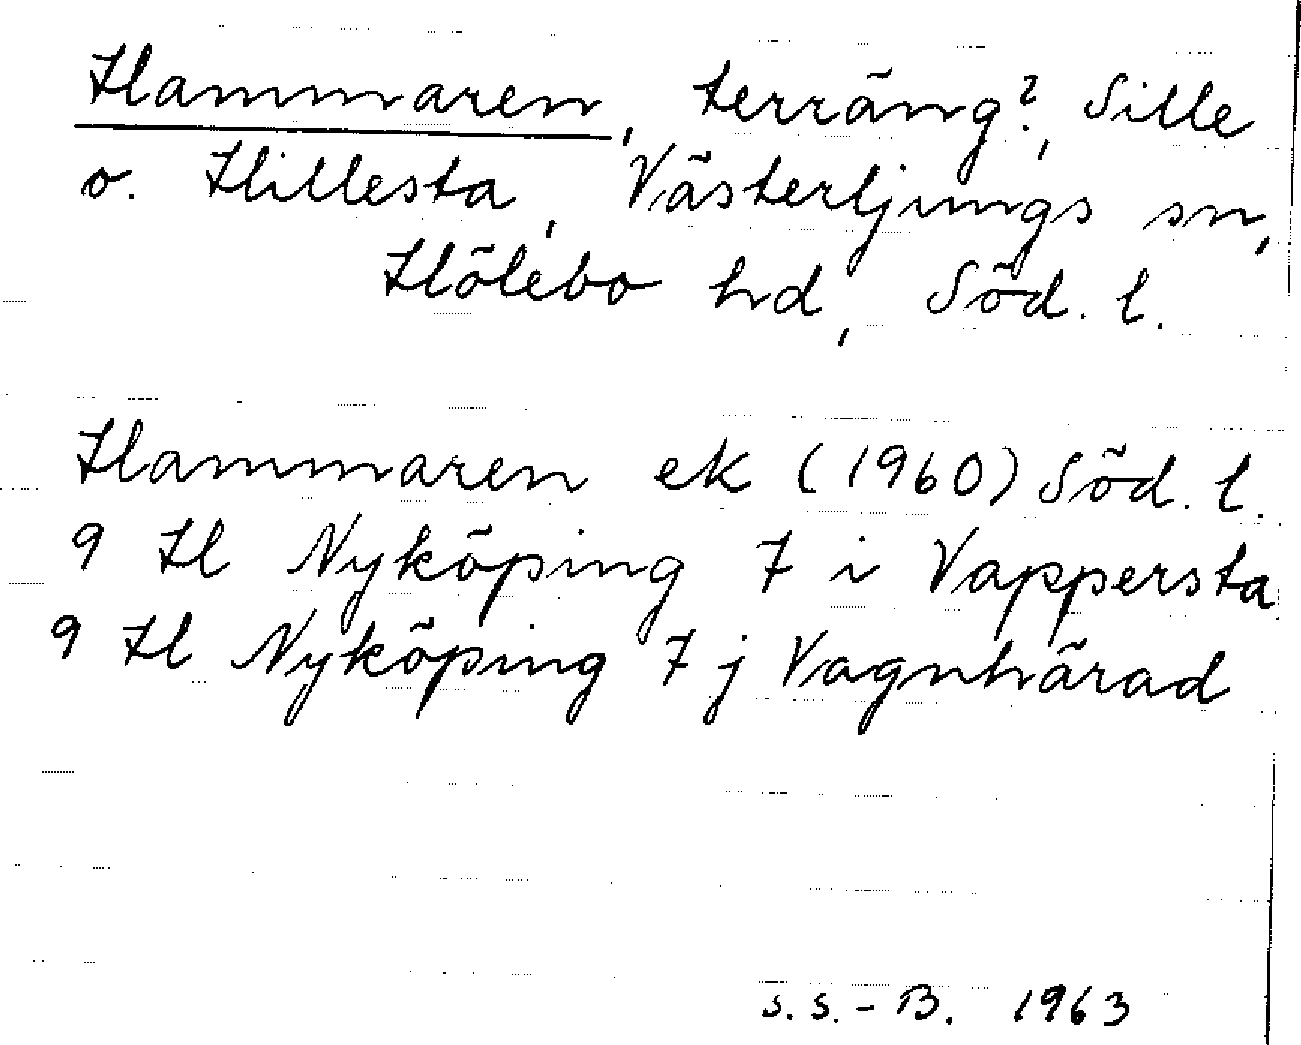 Hammaren, terräng?, Sille
o. Hillesta, Västerljungs sn,
Hölebo hd, Söd. l.
Hammaren ek (1960) Söd. l.
9 H Nyköping 7 i Vappersta
9 H Nyköping 7 j Vagnhärad
S. S.-B. 1963